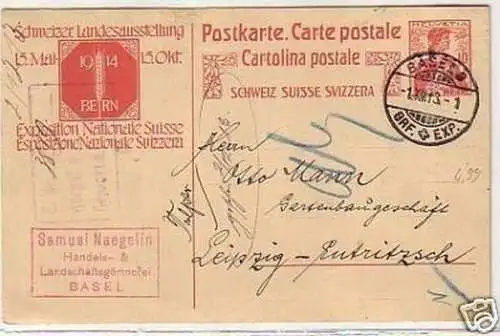 Schweizer Landesausstellung
15. Mai 15. Okt.
1914
BERN
Exposition Nationale Suisse
Esposizione Nazionale Svizzera
Postkarte. Carte postale
Cartolina postale
SCHWEIZ SUISSE SVIZZERA
HELVETIA
10
BASEL
BRF. EXP.
Herrn
Otto Mann
Gartenbaugeschäft
Leipzig-Eutritzsch
Samuel Naegelin
Handels- &
Landschaftsgärtnerei
BASEL